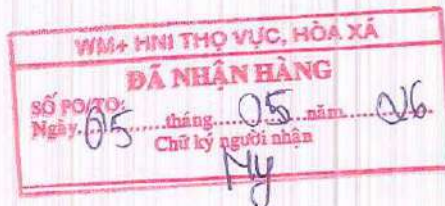 WM+ HNI THỌ VỰC, HÒA XÁ
ĐÃ NHẬN HÀNG
SỐ PO/TO:
Ngày 05 tháng 05 năm 06
Chữ ký người nhận
My